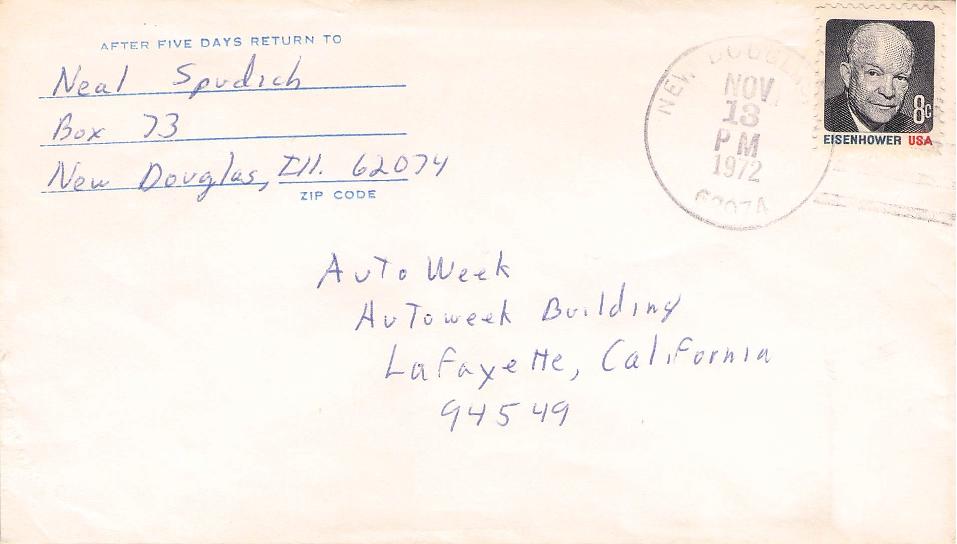 AFTER FIVE DAYS RETURN TO
Neal Spudich
Box 73
New Douglas, Ill. 62074
ZIP CODE
NEW DOUGLAS
NOV
13
PM
1972
62074
8c
EISENHOWER USA
AutoWeek
Autoweek Building
LaFayette, California
94549